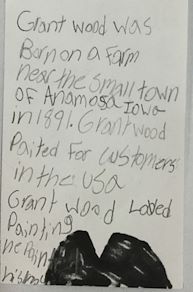 Grant wood was
Born on a Farm
near the small town
OF Anamosa Iowa
in 1891. Grant wood
Paited For customers
in the usa
Grant wood Loved
Painting
he Paint